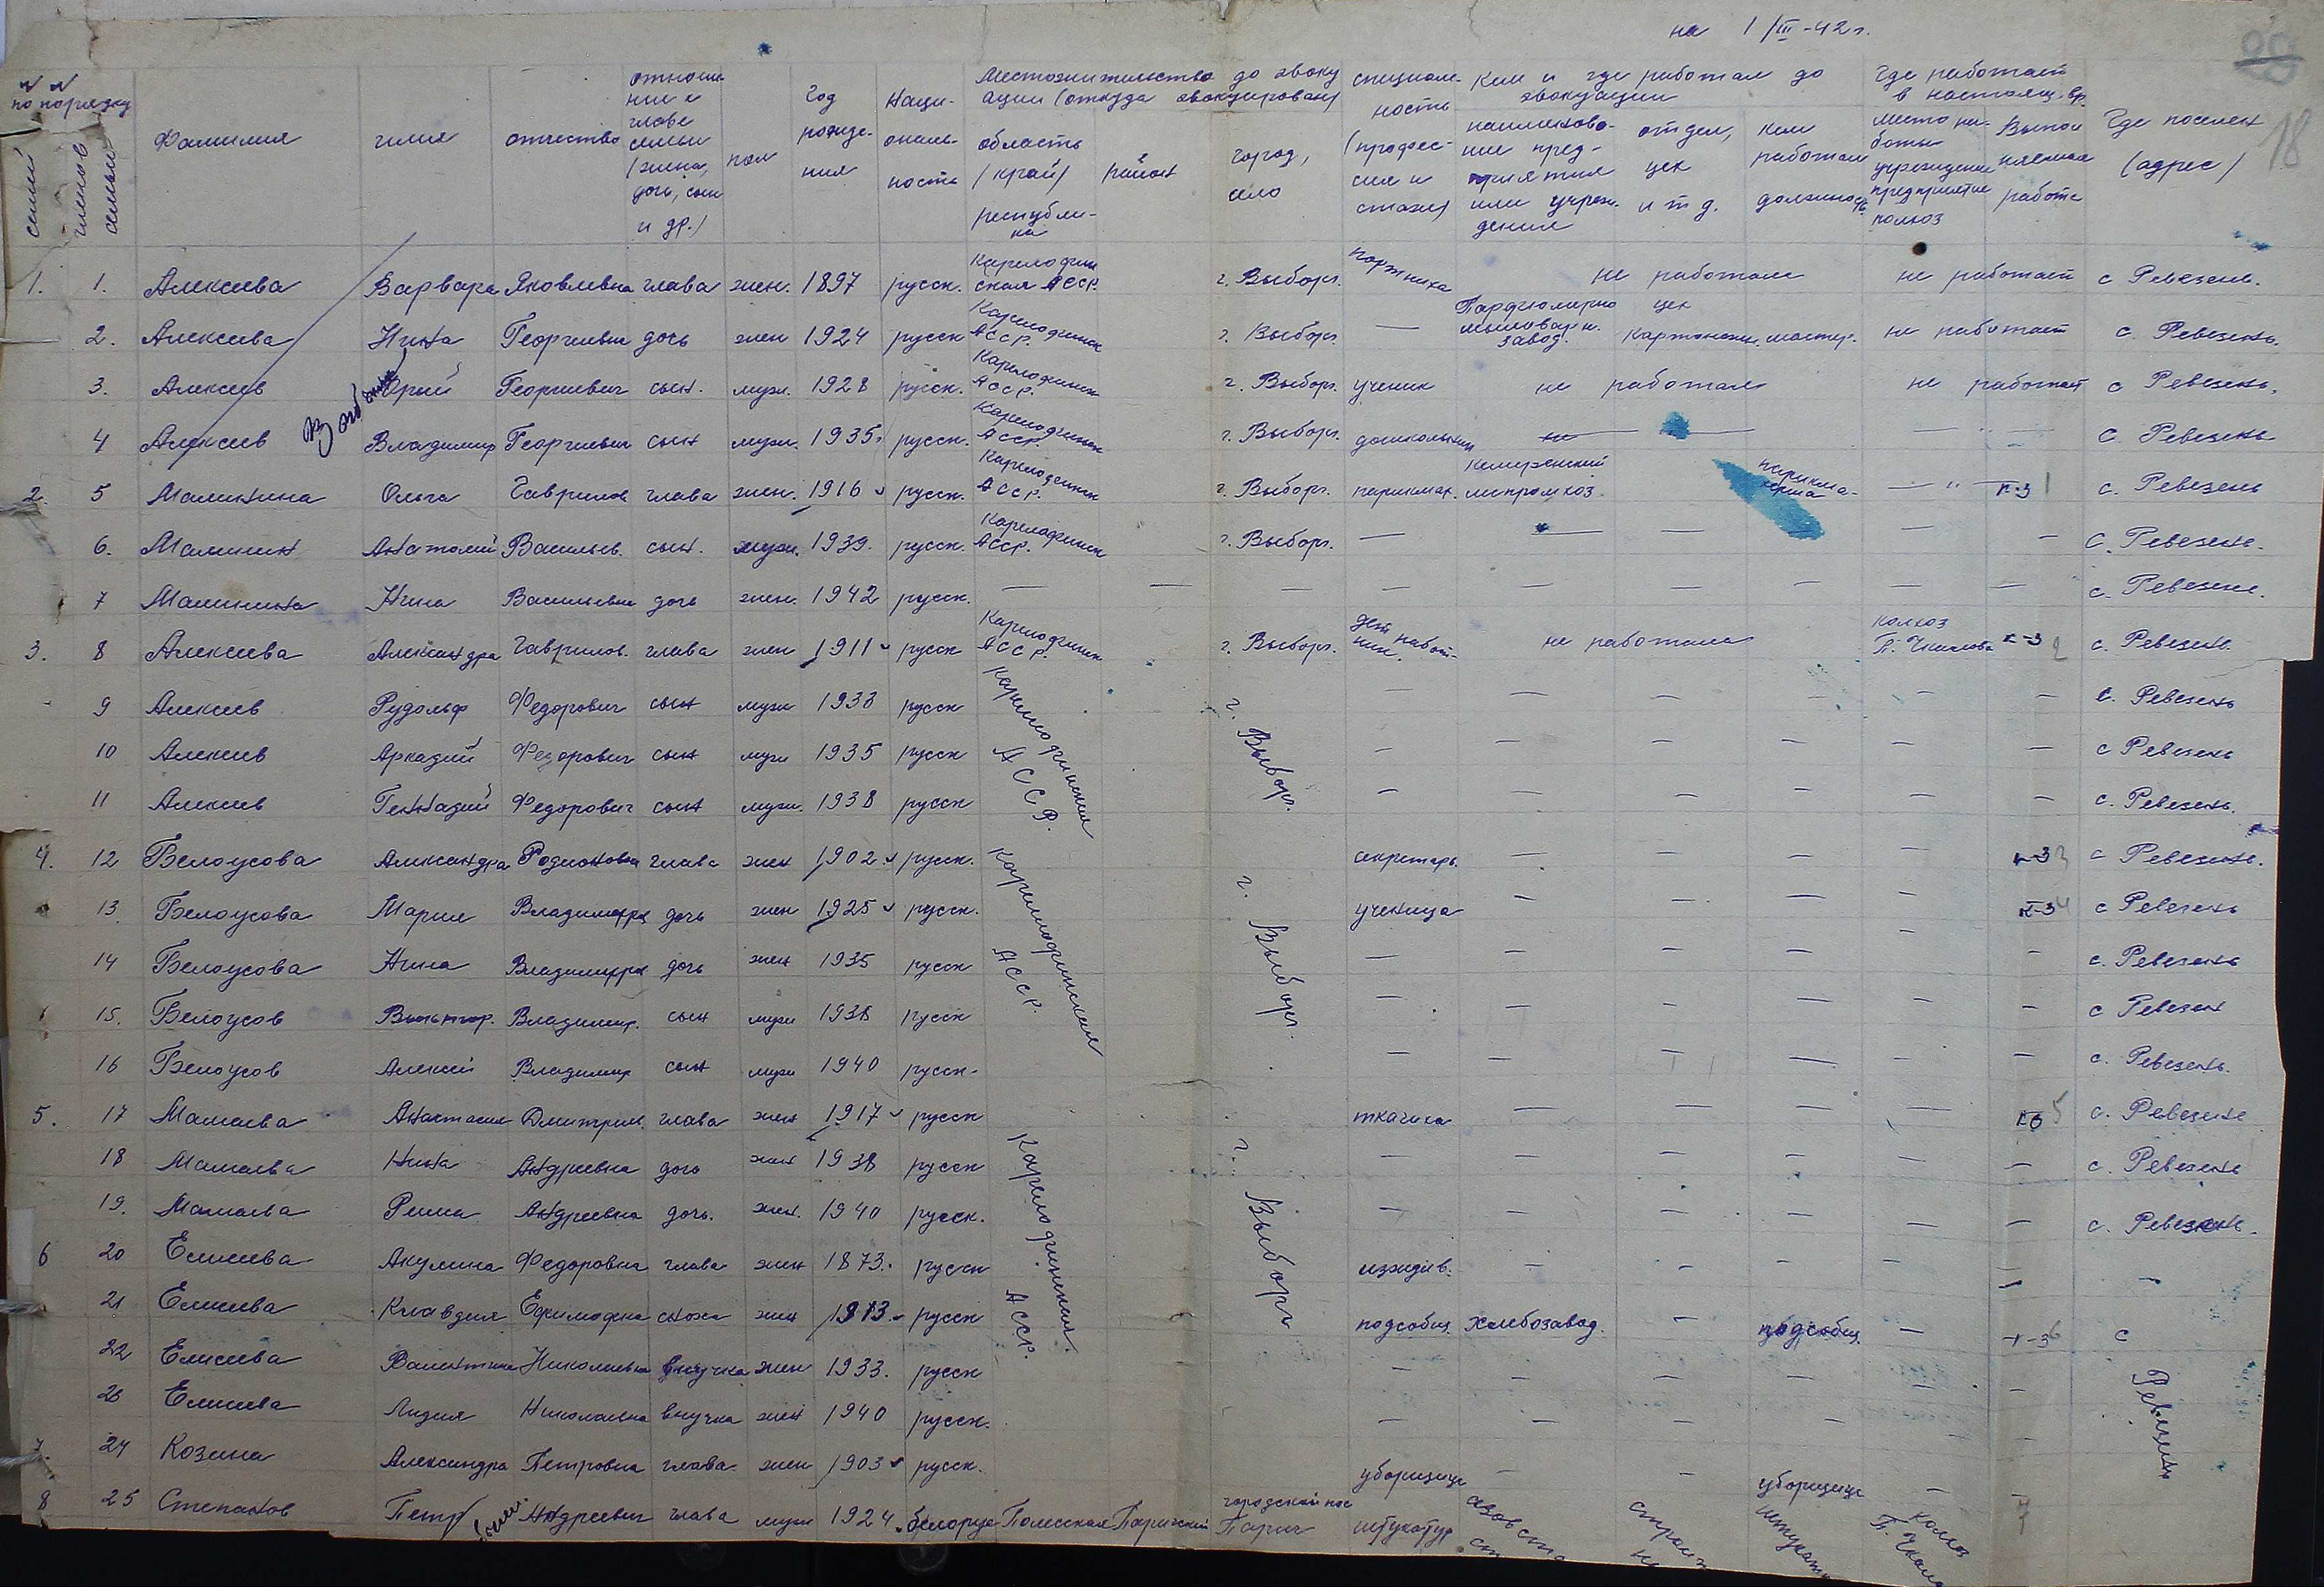 на 1/III-42 г.
18
№ №
по порядку
семей
членов семьи
Фамилия
имя
отчество
отношение к главе семьи (жена, дочь, сын и др.)
пол
Год рождения
Национальность
Местожительство до эвакуации (откуда эвакуирован)
область (край) республика
район
город, село
специальность (профессия и стаж)
Кем и где работал до эвакуации
наименование предприятия или учреждения
отдел, цех и т.д.
кем работал должность
Где работает в настоящ. вр.
место работы учреждение предприятие колхоз
Выполняемая работа
Где поселен (адрес)
1. 1. Алексеева Варвара Яковлевна глава жен. 1897 русск. Карелофинская АССР. г. Выборг. портниха не работала не работает с Ревезень.
2. Алексеева Нина Георгиевна дочь жен 1924 русск Карелофинск АССР. г. Выборг. — мыловарн. завод. цех Картонажн. мастер. не работает с. Ревезень.
3. Алексеев Юрий Георгиевич сын. муж. 1928 русск. Карелофинск АССР. г. Выборг. ученик не работал не работает с Ревезень.
4 Алексеев Владимир Георгиевич сын муж. 1935. русск. Карелофинск АССР. г. Выборг. дошкольник — — — — с. Ревезень
2. 5 Малинина Ольга Гаврилов. глава жен. 1916 русск. Карелофинск АССР. г. Выборг. парикмах. парикмахерша — " — к-з 1 с. Ревезень
6. Малинин Анатолий Васильев. сын. муж. 1939. русск. Карелофинск АССР. г. Выборг. — — — — — с. Ревезень.
7 Малинина Нина Васильевна дочь жен. 1942 русск. — — — — — — — — — с. Ревезень.
3. 8 Алексеева Александра Гаврилов. глава жен 1911 русск Карелофинск АССР. г. Выборг. не работала колхоз П. Чкалова к-з 2 с. Ревезень.
9 Алексеев Рудольф Федорович сын муж 1933 русск Карелофинская АССР. г. Выборг. — — — — — — с. Ревезень
10 Алексеев Аркадий Федорович сын муж 1935 русск — — — — — — с Ревезень
11 Алексеев Геннадий Федорович сын муж. 1938 русск — — — — — — с. Ревезень.
4. 12 Белоусова Александра Родионовна глава жен 1902 русск. Карелофинская АССР. г. Выборг. секретарь. — — — — к-з 3 с Ревезень.
13. Белоусова Мария Владимировна дочь жен 1925 русск. ученица — — — — к-з 4 с Ревезень
14 Белоусова Нина Владимировна дочь жен 1935 русск — — — — — — с. Ревезень
15. Белоусов Виктор. Владимир. сын муж 1938 русск — — — — — — с Ревезень
16 Белоусов Алексей Владимир сын муж 1940 русск. — — — — — — с. Ревезень.
5. 17 Мамаева Анастасия Дмитриев. глава жен 1917 русск Карелофинская АССР. г. Выборг ткачиха — — — — к-з 5 с. Ревезень
18 Мамаева Нина Андреевна дочь жен 1938 русск — — — — — — с. Ревезень
19. Мамаева Римма Андреевна дочь. жен. 1940 русск. — — — — — — с. Ревезень.
6 20 Елисеева Акулина Федоровна глава жен 1873. русск иждив. — — — — —
21 Елисеева Клавдия Ефимовна сноха жен 1913. русск подсобн. Хлебозавод. — подсобн. — к-з 6 с Ревезень
22 Елисеева Валентина Николаевна внучка жен 1933. русск — — — — — —
23 Елисеева Лидия Николаевна внучка жен 1940 русск. — — — — — —
7. 24 Козина Александра Петровна глава жен 1903 русск. уборщица — — уборщица — —
8 25 Степанов Петр Андреевич глава муж 1924. белорус Полесская Паричский городской пос Паричи штукатур колхоз П. Чкал 7